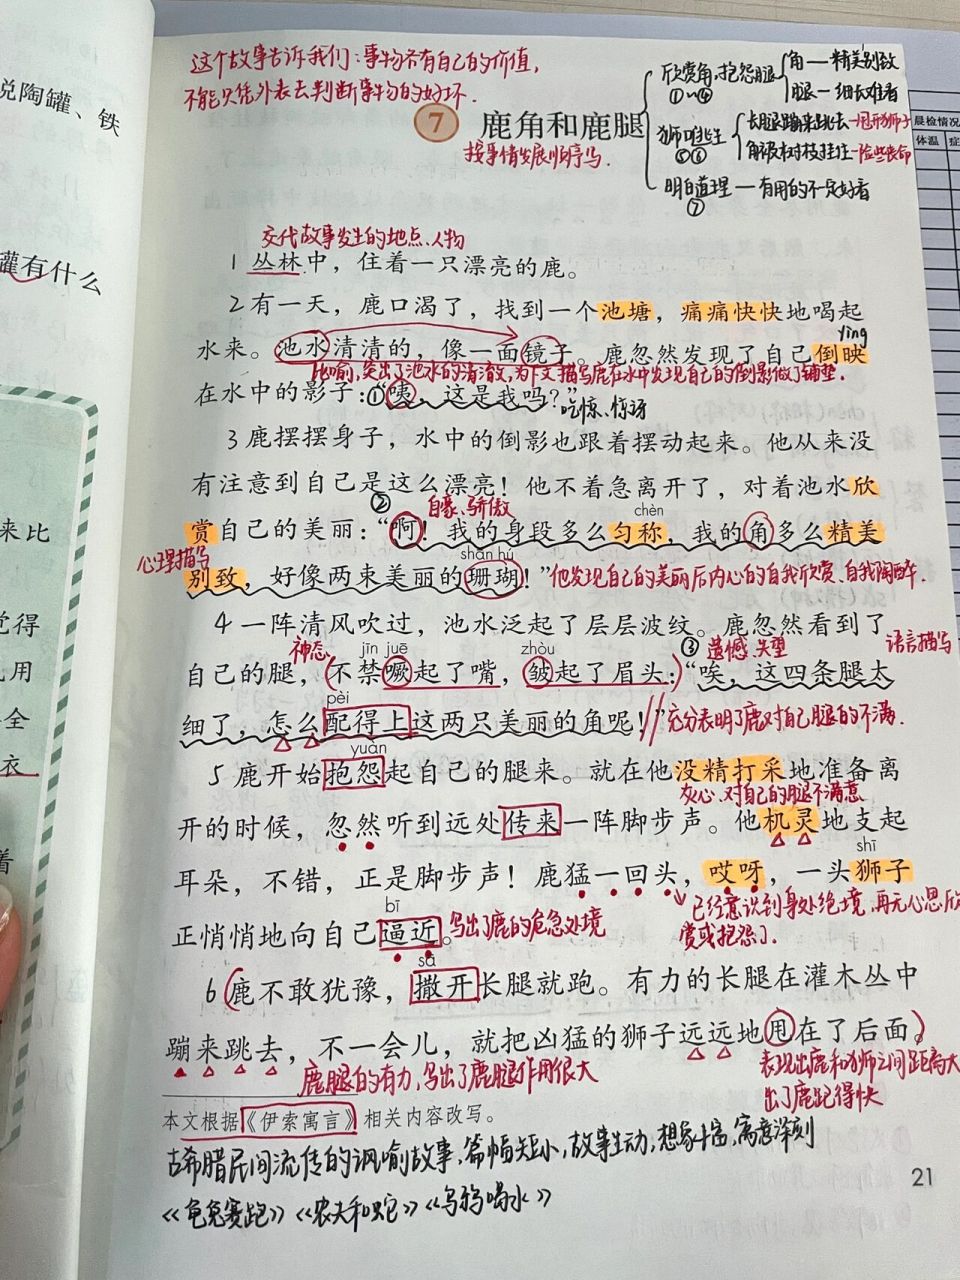 说陶罐、铁
罐有什么
来比
觉得
用
全
衣
着
这个故事告诉我们：事物各有自己的价值，
不能只凭外表去判断事物的好坏．
7 鹿角和鹿腿
按事情发展顺序写．
欣赏角，抱怨腿
①~④
角—精美别致
腿—细长难看
狮口逃生
⑤⑥
长腿蹦来跳去—甩开狮子
角被树枝挂住—险些丧命
明白道理—有用的不一定好看
⑦
晨检情况
体温
交代故事发生的地点、人物
1 丛林中，住着一只漂亮的鹿。
2 有一天，鹿口渴了，找到一个池塘，痛痛快快地喝起
yìng
水来。池水清清的，像一面镜子。鹿忽然发现了自己倒映
比喻，突出了池水的清澈，为下文描写鹿在水中发现自己的倒影做了铺垫．
在水中的影子：①“咦，这是我吗？”
吃惊、惊讶
3 鹿摆摆身子，水中的倒影也跟着摆动起来。他从来没
有注意到自己是这么漂亮！他不着急离开了，对着池水欣
② 自豪、骄傲 chèn
赏自己的美丽：“啊！我的身段多么匀称，我的角多么精美
心理描写 shān hú
别致，好像两束美丽的珊瑚！”他发现自己的美丽后内心的自我欣赏、自我陶醉．
4 一阵清风吹过，池水泛起了层层波纹。鹿忽然看到了
神态 jīn juē zhòu ③ 遗憾、失望 语言描写
自己的腿，不禁噘起了嘴，皱起了眉头：“唉，这四条腿太
pèi
细了，怎么配得上这两只美丽的角呢！”充分表明了鹿对自己腿的不满．
yuàn
5 鹿开始抱怨起自己的腿来。就在他没精打采地准备离
灰心、对自己的腿不满意
开的时候，忽然听到远处传来一阵脚步声。他机灵地支起
shī
耳朵，不错，正是脚步声！鹿猛一回头，哎呀，一头狮子
已经意识到身处绝境，再无心思欣
赏或抱怨了．
bī
正悄悄地向自己逼近。写出了鹿的危急处境
sā
6 鹿不敢犹豫，撒开长腿就跑。有力的长腿在灌木丛中
蹦来跳去，不一会儿，就把凶猛的狮子远远地甩在了后面。
鹿腿的有力，写出了鹿腿作用很大
表现出鹿和狮子之间距离大
出了鹿跑得快
本文根据《伊索寓言》相关内容改写。
古希腊民间流传的讽喻故事，篇幅短小，故事生动，想象丰富，寓意深刻
《龟兔赛跑》《农夫和蛇》《乌鸦喝水》
21